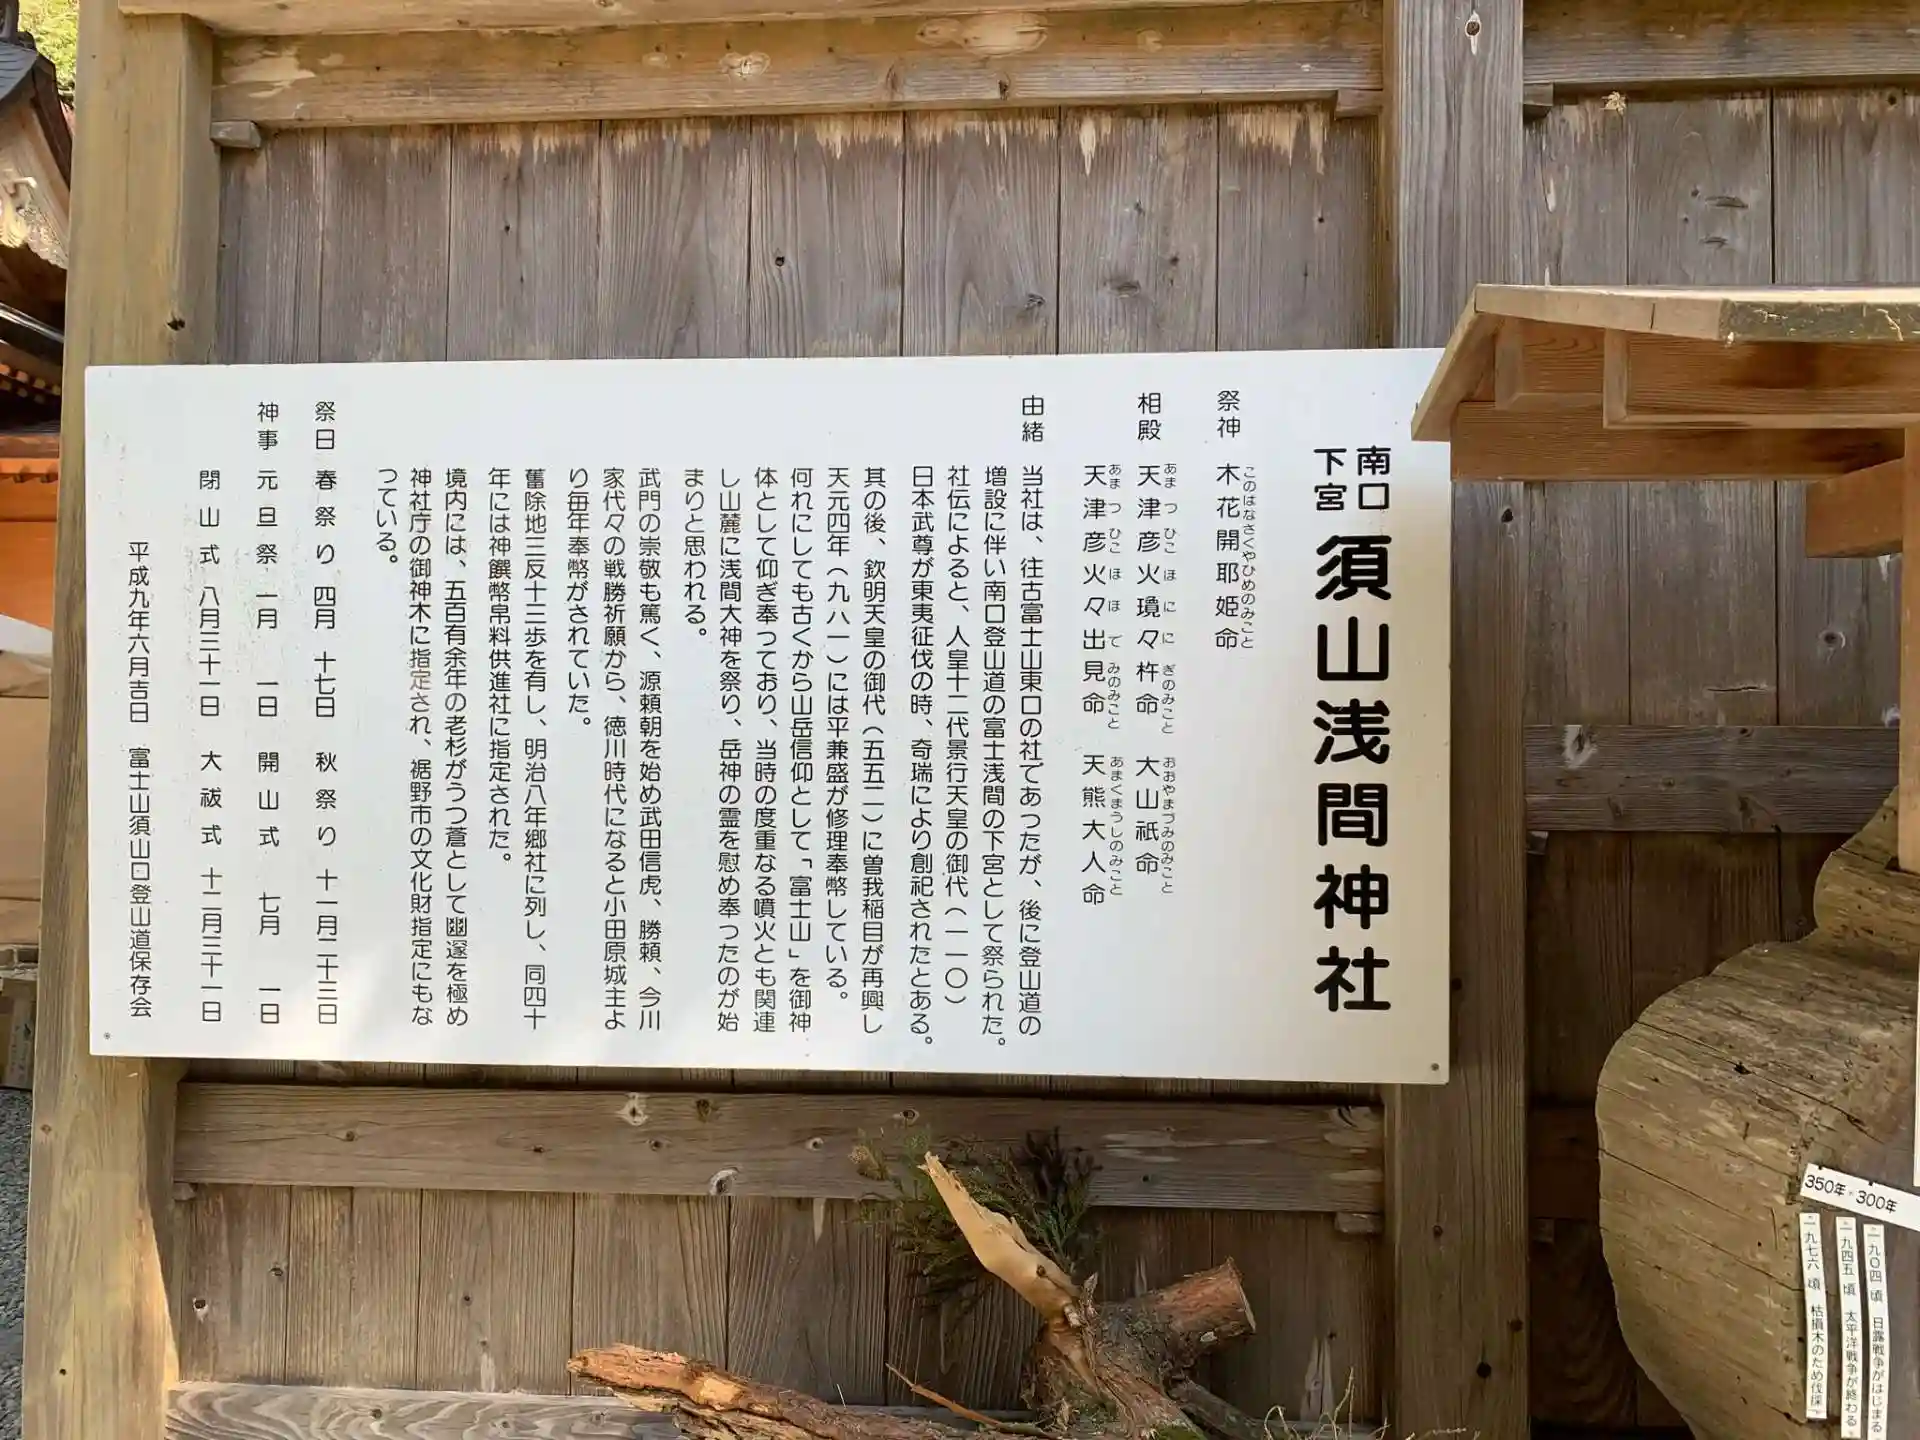 南口
下宮
須山浅間神社
祭神 木花開耶姫命
このはなさくやひめのみこと
相殿 天津彦火瓊々杵命 大山祇命
あま つ ひこ ほ に に ぎのみこと おおやまづみのみこと
天津彦火々出見命 天熊大人命
あま つ ひこ ほ ほ で みのみこと あまくまうしのみこと
由緒 当社は、往古富士山東口の社であったが、後に登山道の
増設に伴い南口登山道の富士浅間の下宮として祭られた。
社伝によると、人皇十二代景行天皇の御代（一一〇）
日本武尊が東夷征伐の時、奇瑞により創祀されたとある。
其の後、欽明天皇の御代（五五二）に曽我稲目が再興し
天元四年（九八一）には平兼盛が修理奉幣している。
何れにしても古くから山岳信仰として「富士山」を御神
体として仰ぎ奉っており、当時の度重なる噴火とも関連
し山麓に浅間大神を祭り、岳神の霊を慰め奉ったのが始
まりと思われる。
武門の崇敬も篤く、源頼朝を始め武田信虎、勝頼、今川
家代々の戦勝祈願から、徳川時代になると小田原城主よ
り毎年奉幣がされていた。
旧除地三反十三歩を有し、明治八年郷社に列し、同四十
年には神饌幣帛料供進社に指定された。
境内には、五百有余年の老杉がうつ蒼として幽邃を極め
神社庁の御神木に指定され、裾野市の文化財指定にもな
っている。
祭日 春祭り 四月 十七日 秋祭り 十一月二十三日
神事 元旦祭 一月 一日 開山式 七月 一日
閉山式 八月三十一日 大祓式 十二月三十一日
平成九年六月吉日 富士山須山口登山道保存会
350年・300年
一九〇四 頃 日露戦争がはじまる
一九四五 頃 太平洋戦争が終わる
一九七六 頃 枯損木のため伐採